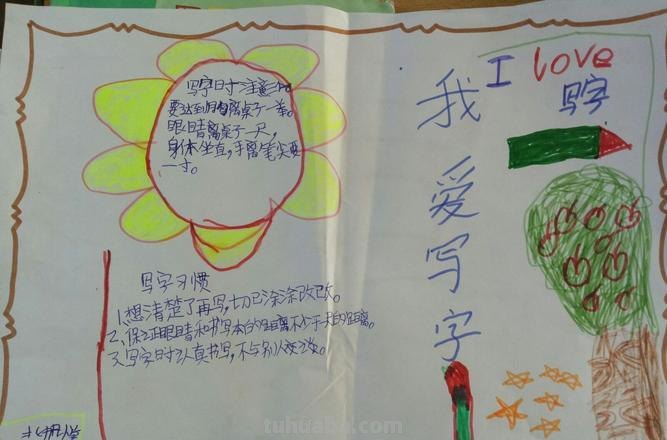 写字时注意
要达到胸离桌子一拳。
眼睛离桌子一尺，
身体坐直，手离笔尖要
一寸。
I love
写字
我
爱
写
字
写字习惯
1、想清楚了再写，切忌涂涂改改。
2、保证眼睛和书写本的距离不少于一尺的距离。
3、写字时认真书写，不与别人交谈。
tuhuabu.com